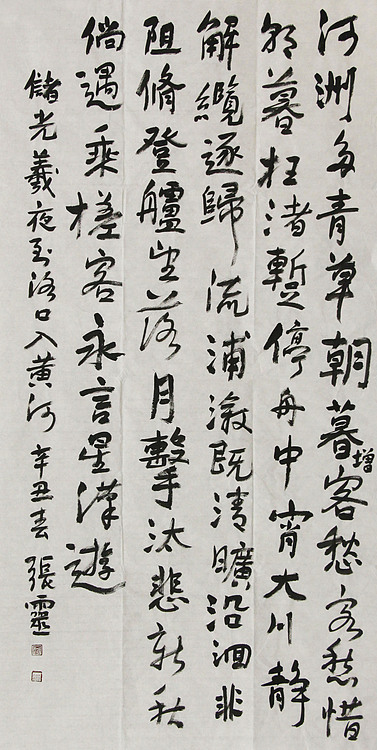 河洲多青草朝暮增客愁客愁惜
朝暮枉渚暫停舟中宵大川静
解纜逐歸流浦溆既清曠沿洄非
阻脩登艫望落月擊汰悲新秋
倘遇乘槎客永言星漢遊
儲光羲夜到洛口入黄河 辛丑春 張靈